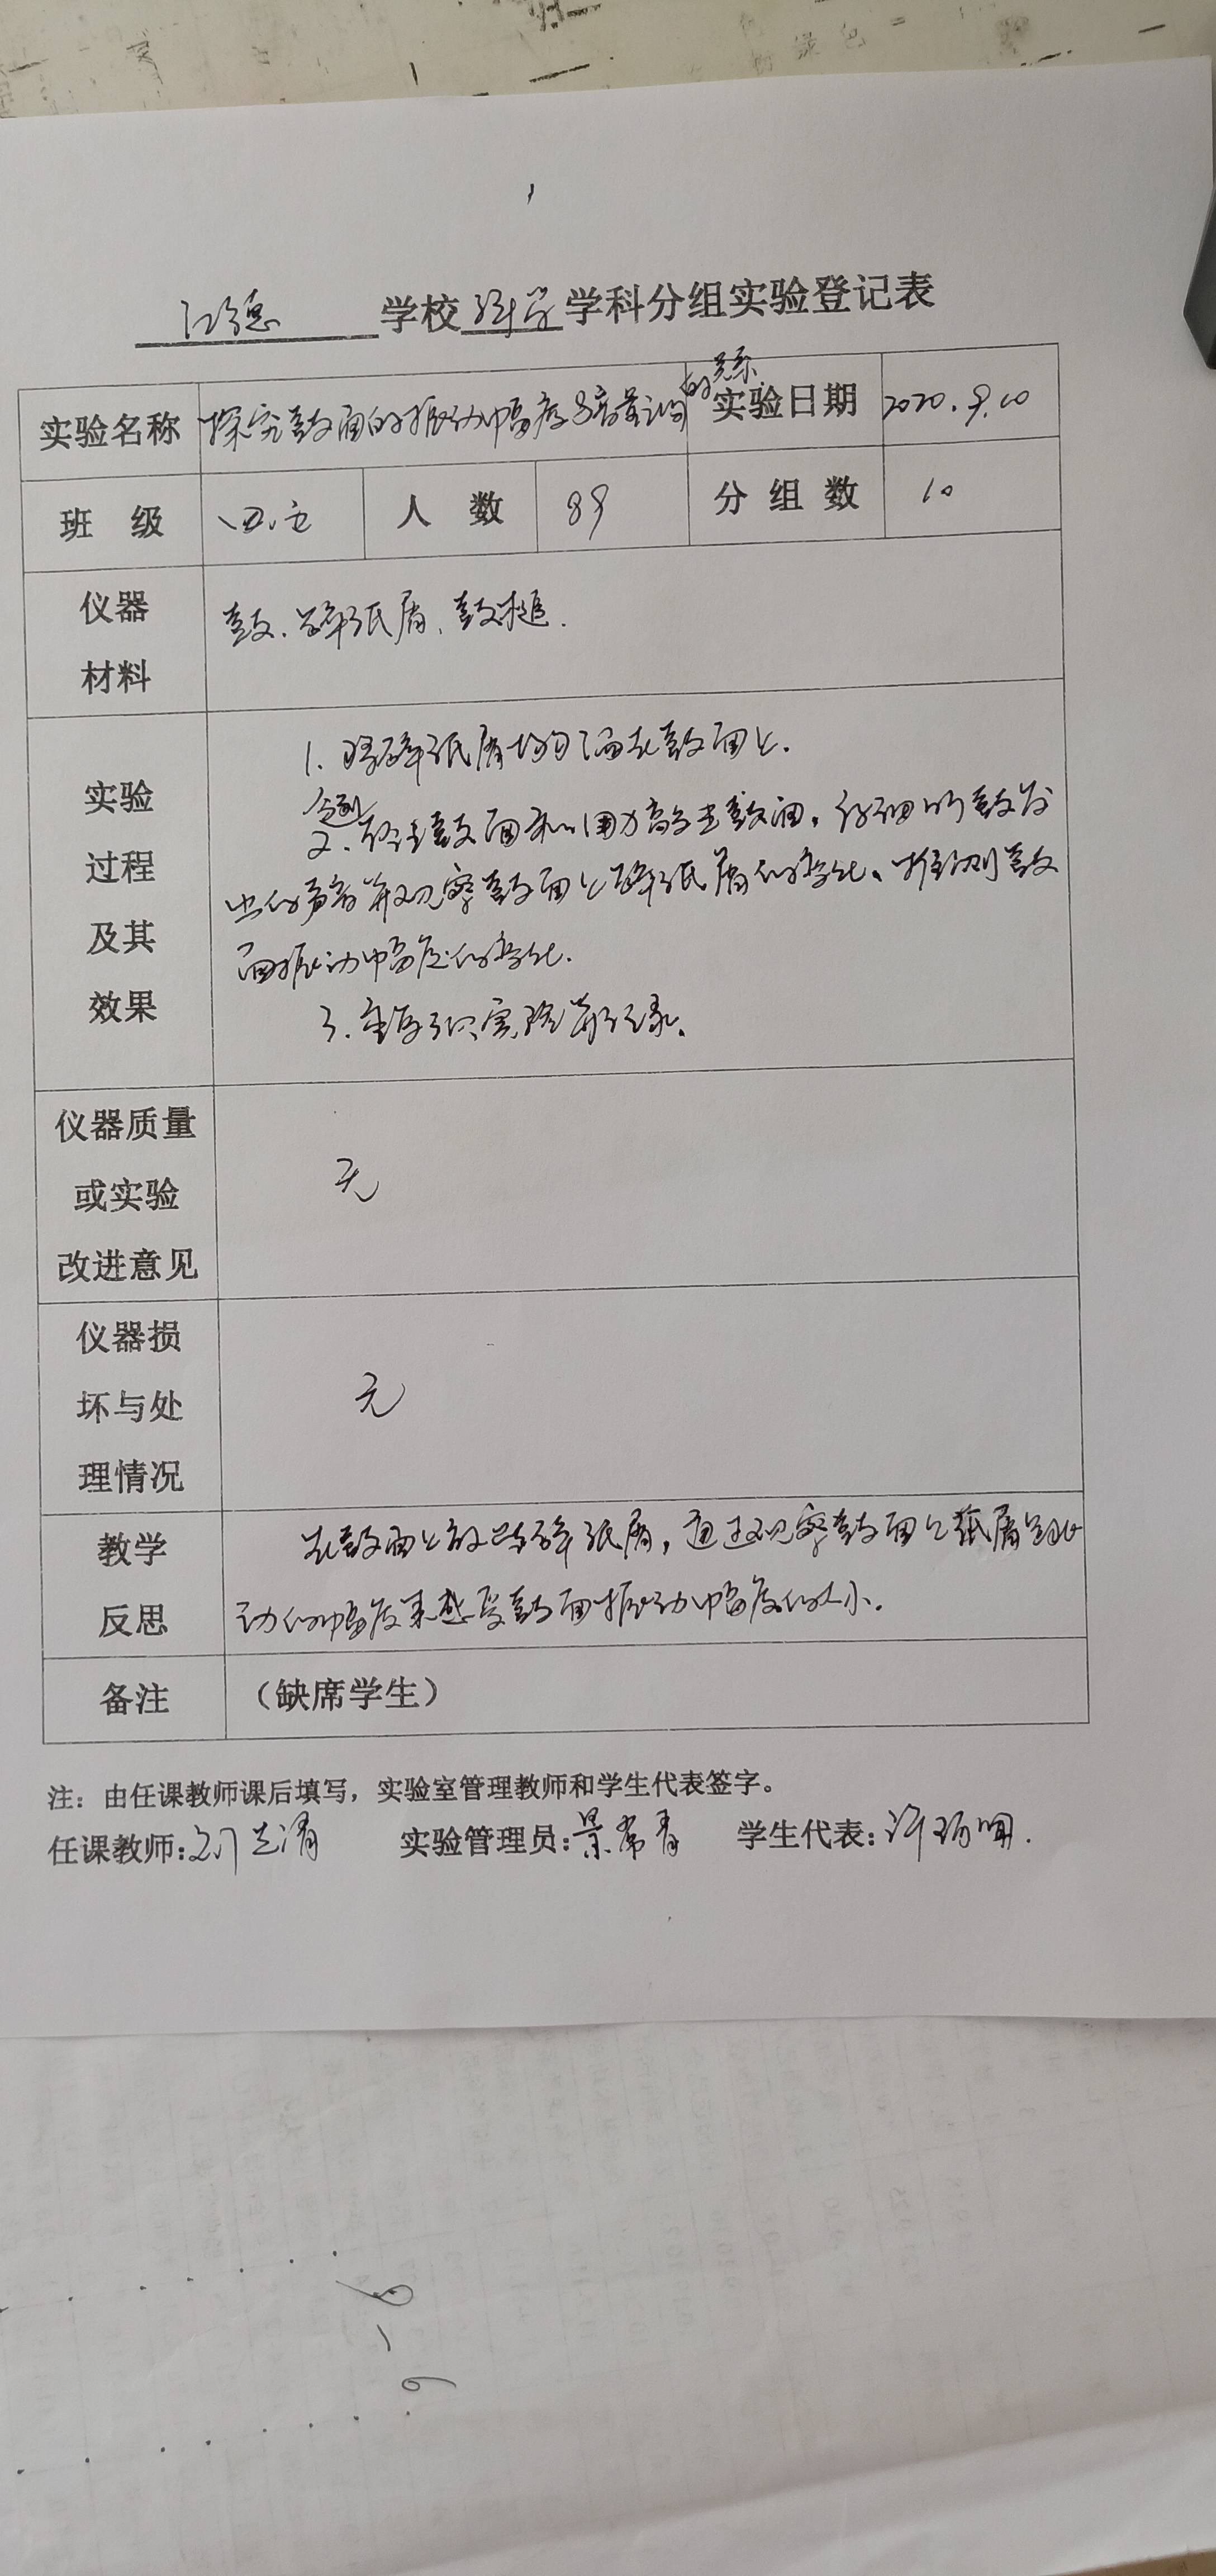 学校科学学科分组实验登记表
实验名称 探究鼓面的振动幅度与音量之间的关系 实验日期 2020.9.10
班 级 四.五 人 数 89 分 组 数 10
仪器
材料
鼓、碎纸屑、鼓槌.
实验
过程
及其
效果
1. 将碎纸屑均匀洒在鼓面上.
2. 轻击鼓面和用力敲击鼓面, 仔细听鼓发
出的声音并观察鼓面上碎纸屑的变化、推测鼓
面振动幅度的变化.
3. 重复3次实验并记录.
仪器质量
或实验
改进意见
无
仪器损
坏与处
理情况
无
教学
反思
在鼓面上放些碎纸屑, 通过观察鼓面上纸屑跳
动的幅度来感受鼓面振动幅度的大小.
备注 (缺席学生)
注: 由任课教师课后填写, 实验室管理教师和学生代表签字。
任课教师: 刘兰清 实验管理员: 景常青 学生代表: 许